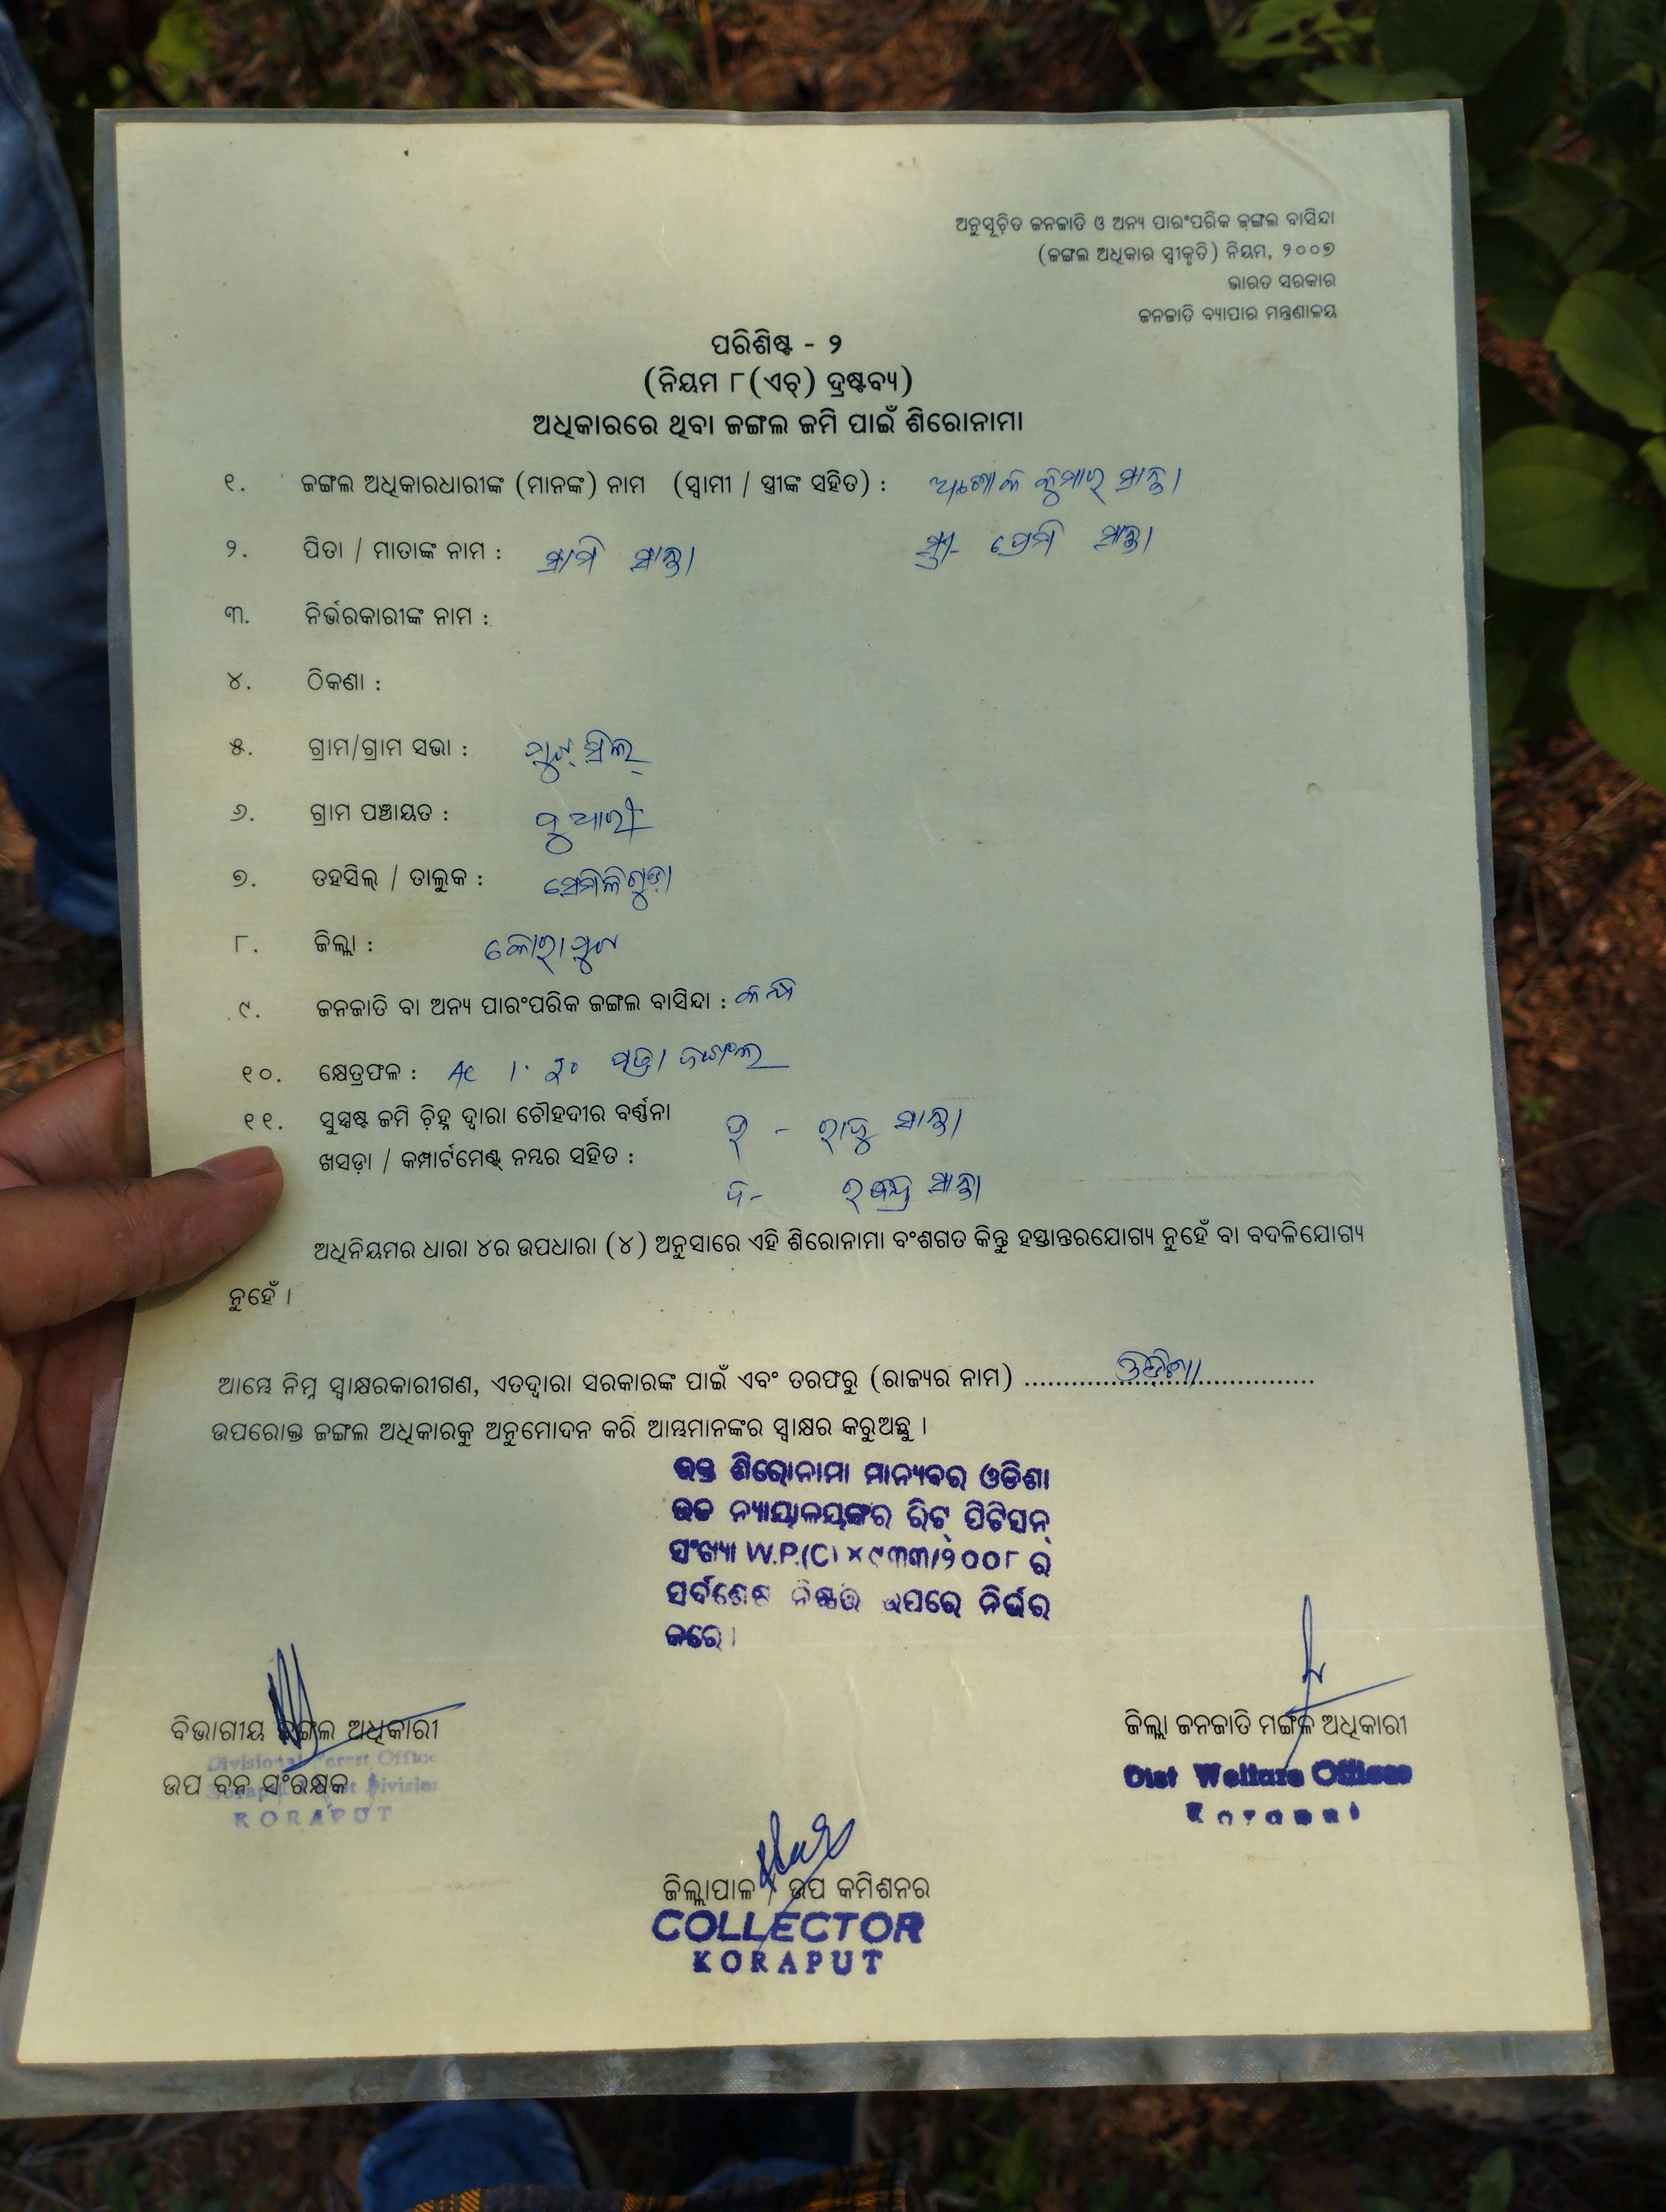 ଅନୁସୂଚିତ ଜନଜାତି ଓ ଅନ୍ୟ ପାରଂପରିକ ଜଙ୍ଗଲ ବାସିନ୍ଦା
(ଜଙ୍ଗଲ ଅଧିକାର ସ୍ୱୀକୃତି) ନିୟମ, ୨୦୦୭
ଭାରତ ସରକାର
ଜନଜାତି ବ୍ୟାପାର ମନ୍ତ୍ରଣାଳୟ
ପରିଶିଷ୍ଟ - ୨
(ନିୟମ ୮(ଏଚ୍) ଦ୍ରଷ୍ଟବ୍ୟ)
ଅଧିକାରରେ ଥିବା ଜଙ୍ଗଲ ଜମି ପାଇଁ ଶିରୋନାମା
୧. ଜଙ୍ଗଲ ଅଧିକାରଧାରୀଙ୍କ (ମାନଙ୍କ) ନାମ (ସ୍ୱାମୀ / ସ୍ତ୍ରୀଙ୍କ ସହିତ) : ଅଶୋକ କୁମାର୍ ସାନ୍ତା
୨. ପିତା / ମାତାଙ୍କ ନାମ : ସାମି ସାନ୍ତା ସ୍ତ୍ରୀ- ପ୍ରେମି ସାନ୍ତା
୩. ନିର୍ଭରକାରୀଙ୍କ ନାମ :
୪. ଠିକଣା :
୫. ଗ୍ରାମ/ଗ୍ରାମ ସଭା :
୬. ଗ୍ରାମ ପଞ୍ଚାୟତ :
୭. ତହସିଲ୍ / ତାଲୁକ : ସେମିଳିଗୁଡ଼ା
୮. ଜିଲ୍ଲା : କୋରାପୁଟ
୯. ଜନଜାତି ବା ଅନ୍ୟ ପାରଂପରିକ ଜଙ୍ଗଲ ବାସିନ୍ଦା : କନ୍ଧ
୧୦. କ୍ଷେତ୍ରଫଳ : Ac ୧.୨୦ ପତ୍ରା ଜଙ୍ଗଲ
୧୧. ସୁସ୍ପଷ୍ଟ ଜମି ଚିହ୍ନ ଦ୍ୱାରା ଚୌହଦୀର ବର୍ଣ୍ଣନା ଉ - ରାଜୁ ସାନ୍ତା
ଖସଡ଼ା / କମ୍ପାର୍ଟମେଣ୍ଟ୍ ନମ୍ବର ସହିତ : ଦ- ସାନ୍ତା
ଅଧିନିୟମର ଧାରା ୪ର ଉପଧାରା (୪) ଅନୁସାରେ ଏହି ଶିରୋନାମା ବଂଶଗତ କିନ୍ତୁ ହସ୍ତାନ୍ତରଯୋଗ୍ୟ ନୁହେଁ ବା ବଦଳିଯୋଗ୍ୟ
ନୁହେଁ ।
ଆମ୍ଭେ ନିମ୍ନ ସ୍ୱାକ୍ଷରକାରୀଗଣ, ଏତଦ୍ୱାରା ସରକାରଙ୍କ ପାଇଁ ଏବଂ ତରଫରୁ (ରାଜ୍ୟର ନାମ) ..........ଓଡିଶା..........
ଉପରୋକ୍ତ ଜଙ୍ଗଲ ଅଧିକାରକୁ ଅନୁମୋଦନ କରି ଆମ୍ଭମାନଙ୍କର ସ୍ୱାକ୍ଷର କରୁଅଛୁ ।
ଉକ୍ତ ଶିରୋନାମା ମାନ୍ୟବର ଓଡିଶା
ଉଚ୍ଚ ନ୍ୟାୟାଳୟଙ୍କର ରିଟ୍ ପିଟିସନ୍
ସଂଖ୍ୟା W.P.(C) ୪୯୩୩/୨୦୦୮ ର
ସର୍ବଶେଷ ନିଷ୍ପତ୍ତି ଉପରେ ନିର୍ଭର
କରେ ।
ବିଭାଗୀୟ ଜଙ୍ଗଲ ଅଧିକାରୀ
Divisional Forest Officer
ଉପ ବନ ସଂରକ୍ଷକ
Koraput Division
KORAPUT
ଜିଲ୍ଲା ଜନଜାତି ମଙ୍ଗଳ ଅଧିକାରୀ
Dist Welfare Officer
Koraput
ଜିଲ୍ଲାପାଳ / ଉପ କମିଶନର
COLLECTOR
KORAPUT